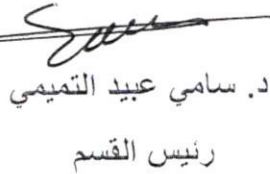 د. سامي عبيد التميمي
رئيس القسم